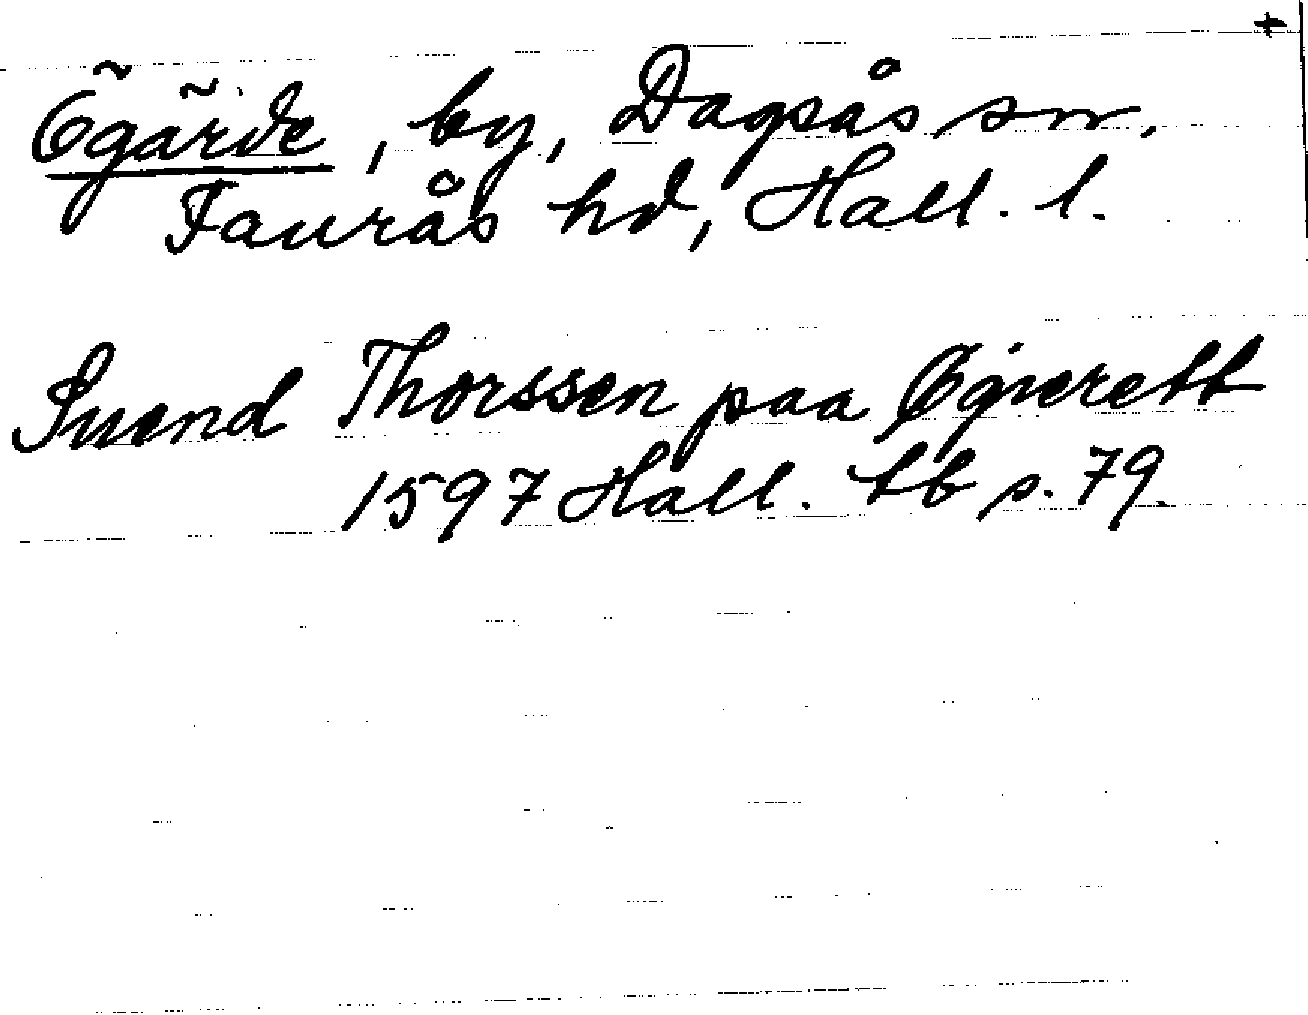 Ögärde, by, Dagsås sn.
Faurås hd, Hall. l.
Suend Thorssen paa Øgierett
1597 Hall. tb s. 79.